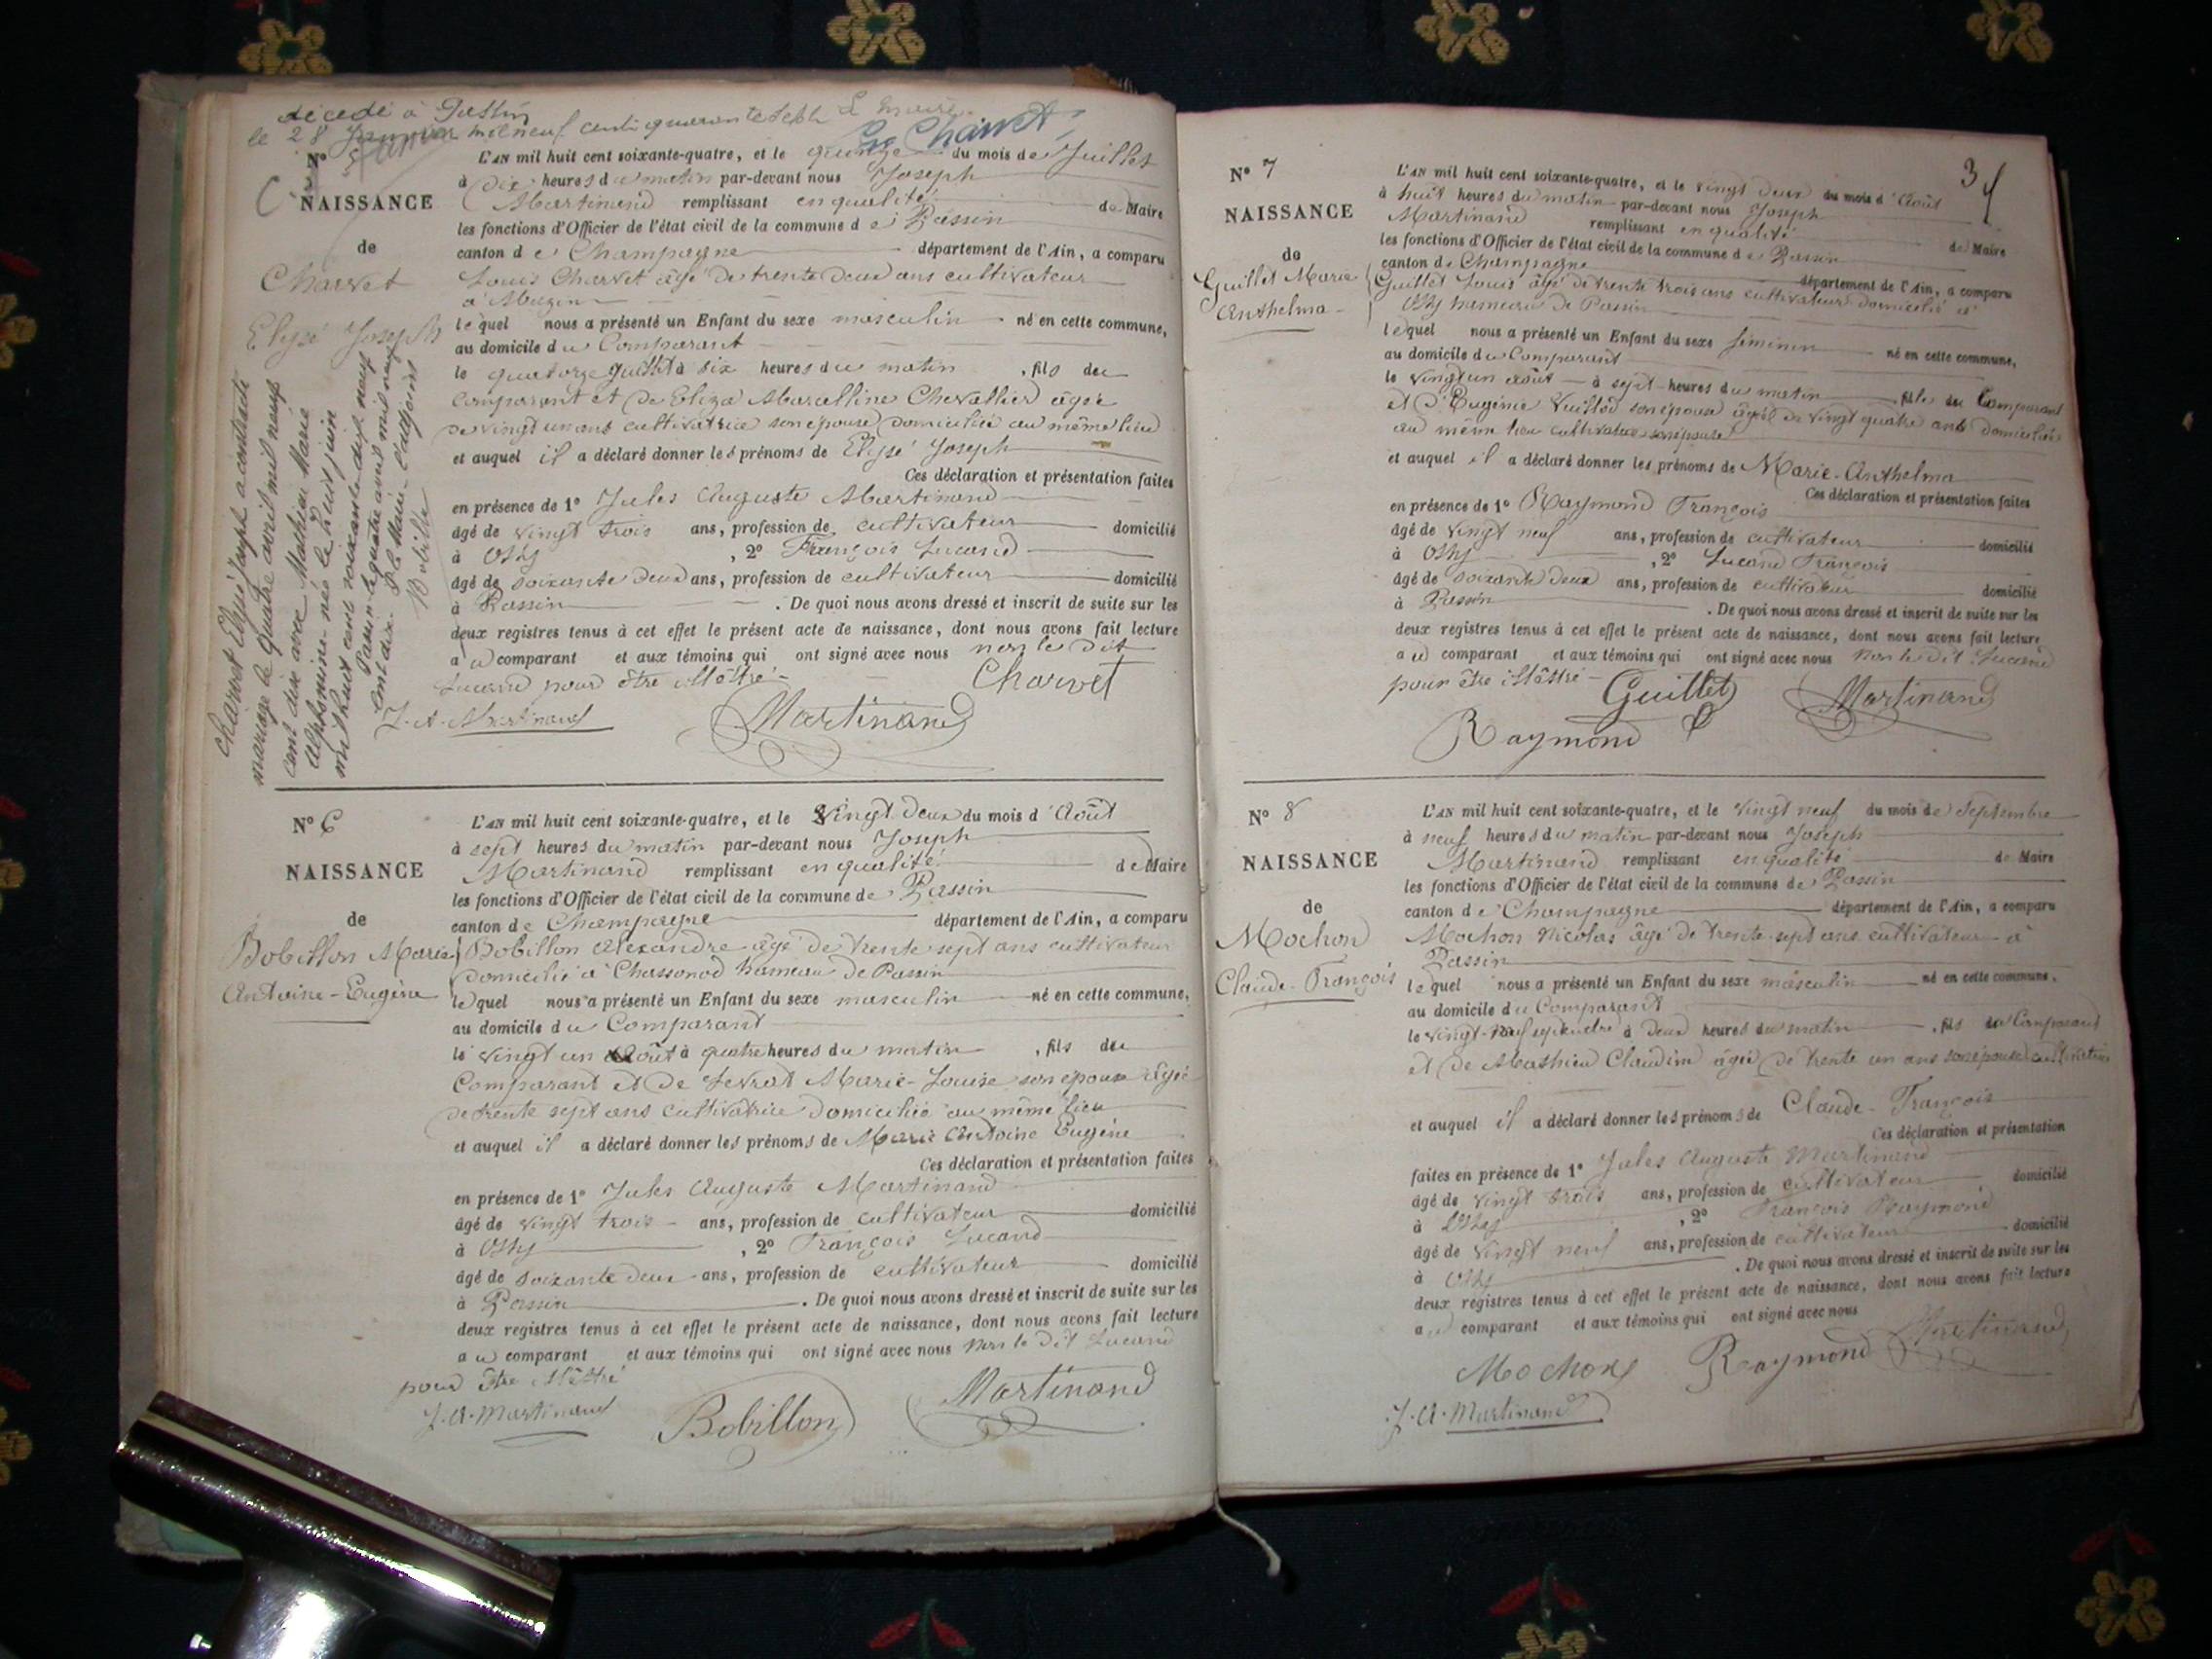 décédé à Passin
le 28 Janvier mil neuf cent quarante sept Le Maire
Charvet
N° 5
NAISSANCE
de
Charvet
Elysé Joseph
Charvet Elysé Joseph a contracté
mariage le quatre avril mil neuf
cent dix avec Mathieu Marie
Alphonsine née le huit juin
mil huit cent soixante dix neuf
Passin le quatre avril mil neuf
cent dix P. le Maire - l'adjoint
Bobillon
L'AN mil huit cent soixante-quatre, et le quinze du mois de Juillet
à dix heures du matin par-devant nous Joseph
Martinand remplissant en qualité de Maire
les fonctions d'Officier de l'état civil de la commune de Passin
canton de Champagne département de l'Ain, a comparu
Louis Charvet âgé de trente deux ans cultivateur
à
lequel nous a présenté un Enfant du sexe masculin né en cette commune,
au domicile du Comparant
le quatorze Juillet à six heures du matin , fils du
comparant et de Eliza Marcelline Chevallier âgée
de vingt un ans cultivatrice son épouse domiciliée au même lieu
et auquel il a déclaré donner les prénoms de Elysé Joseph
Ces déclaration et présentation faites
en présence de 1° Jules Auguste Martinand
âgé de vingt trois ans, profession de cultivateur domicilié
à Ossy , 2° François Lucand
âgé de soixante deux ans, profession de cultivateur domicilié
à Passin . De quoi nous avons dressé et inscrit de suite sur les
deux registres tenus à cet effet le présent acte de naissance, dont nous avons fait lecture
au comparant et aux témoins qui ont signé avec nous non le dit
Lucand pour être illétré
Charvet
J. A. Martinand Martinand
N° 6
NAISSANCE
de
Bobillon Marie
Antoine-Eugène
L'AN mil huit cent soixante-quatre, et le vingt deux du mois d'Août
à sept heures du matin par-devant nous Joseph
Martinand remplissant en qualité de Maire
les fonctions d'Officier de l'état civil de la commune de Passin
canton de Champagne département de l'Ain, a comparu
Bobillon Alexandre âgé de trente sept ans cultivateur
domicilié à Chassonod hameau de Passin
lequel nous a présenté un Enfant du sexe masculin né en cette commune,
au domicile du Comparant
le vingt un Août à quatre heures du matin , fils du
Comparant et de Marie-Louise son épouse âgée
de trente sept ans cultivatrice domiciliée au même lieu
et auquel il a déclaré donner les prénoms de Marie Antoine Eugène
Ces déclaration et présentation faites
en présence de 1° Jules Auguste Martinand
âgé de vingt trois ans, profession de cultivateur domicilié
à Ossy , 2° François Lucand
âgé de soixante deux ans, profession de cultivateur domicilié
à Passin . De quoi nous avons dressé et inscrit de suite sur les
deux registres tenus à cet effet le présent acte de naissance, dont nous avons fait lecture
au comparant et aux témoins qui ont signé avec nous non le dit Lucand
pour être illétré
J. A. Martinand Bobillon Martinand
34
N° 7
NAISSANCE
de
Guillet Marie
Anthelma
L'AN mil huit cent soixante-quatre, et le vingt deux du mois d'Août
à huit heures du matin par-devant nous Joseph
Martinand remplissant en qualité de Maire
les fonctions d'Officier de l'état civil de la commune de Passin
canton de Champagne département de l'Ain, a comparu
Guillet Louis âgé de trente trois ans cultivateur domicilié à
Ossy hameau de Passin
lequel nous a présenté un Enfant du sexe féminin né en cette commune,
au domicile du Comparant
le vingt un août à sept heures du matin fille du Comparant
et d'Eugénie son épouse âgée de vingt quatre ans domiciliée
au même lieu cultivatrice son épouse
et auquel il a déclaré donner les prénoms de Marie-Anthelma
Ces déclaration et présentation faites
en présence de 1° Raymond François
âgé de vingt neuf ans, profession de cultivateur domicilié
à Ossy , 2° Lucand François
âgé de soixante deux ans, profession de cultivateur domicilié
à Passin . De quoi nous avons dressé et inscrit de suite sur les
deux registres tenus à cet effet le présent acte de naissance, dont nous avons fait lecture
au comparant et aux témoins qui ont signé avec nous non le dit Lucand
pour être illétré Guillet Martinand
Raymond
N° 8
NAISSANCE
de
Mochon
Claude-François
L'AN mil huit cent soixante-quatre, et le vingt neuf du mois de Septembre
à neuf heures du matin par-devant nous Joseph
Martinand remplissant en qualité de Maire
les fonctions d'Officier de l'état civil de la commune de Passin
canton de Champagne département de l'Ain, a comparu
Mochon Nicolas âgé de trente-sept ans cultivateur à
Passin
lequel nous a présenté un Enfant du sexe masculin né en cette commune,
au domicile du Comparant
le vingt-neuf septembre à deux heures du matin , fils du Comparant
et de Mathieu Claudine âgée de trente un ans son épouse cultivatrice
et auquel il a déclaré donner les prénoms de Claude-François
Ces déclaration et présentation
faites en présence de 1° Jules Auguste Martinand
âgé de vingt trois ans, profession de cultivateur domicilié
à Ossy , 2° François Raymond
âgé de vingt neuf ans, profession de cultivateur domicilié
à Ossy . De quoi nous avons dressé et inscrit de suite sur les
deux registres tenus à cet effet le présent acte de naissance, dont nous avons fait lecture
au comparant et aux témoins qui ont signé avec nous
Mochon Raymond Martinand
J. A. Martinand